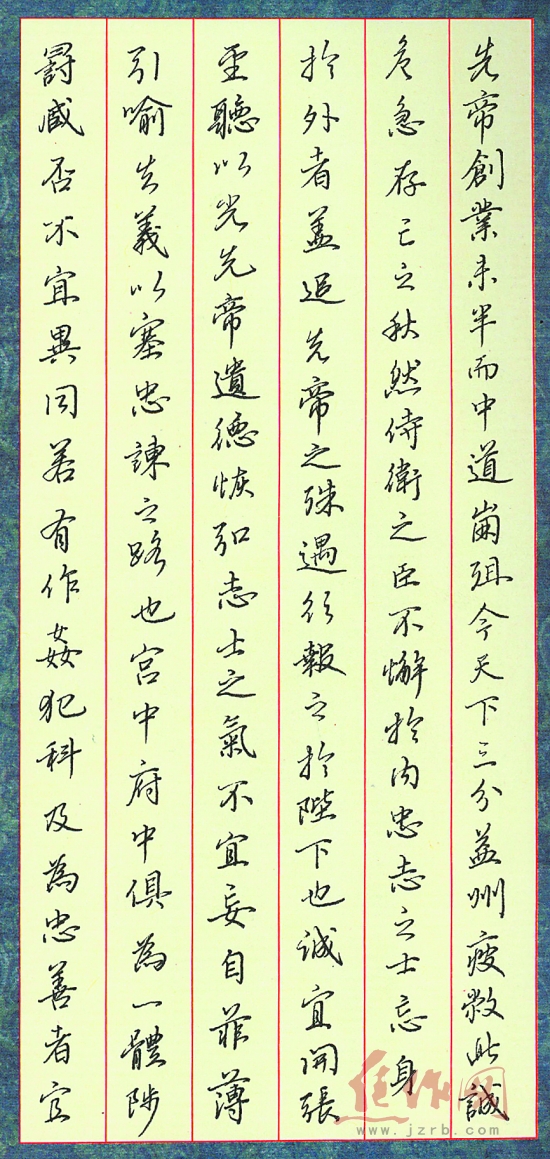 先帝創業未半而中道崩殂今天下三分益州疲敝此誠
危急存亡之秋然侍衛之臣不懈於內忠志之士忘身
於外者蓋追先帝之殊遇欲報之於陛下也誠宜開張
聖聽以光先帝遺德恢弘志士之氣不宜妄自菲薄
引喻失義以塞忠諫之路也宮中府中俱為一體陟
罰臧否不宜異同若有作姦犯科及為忠善者宜
焦作网
www.jzrb.com